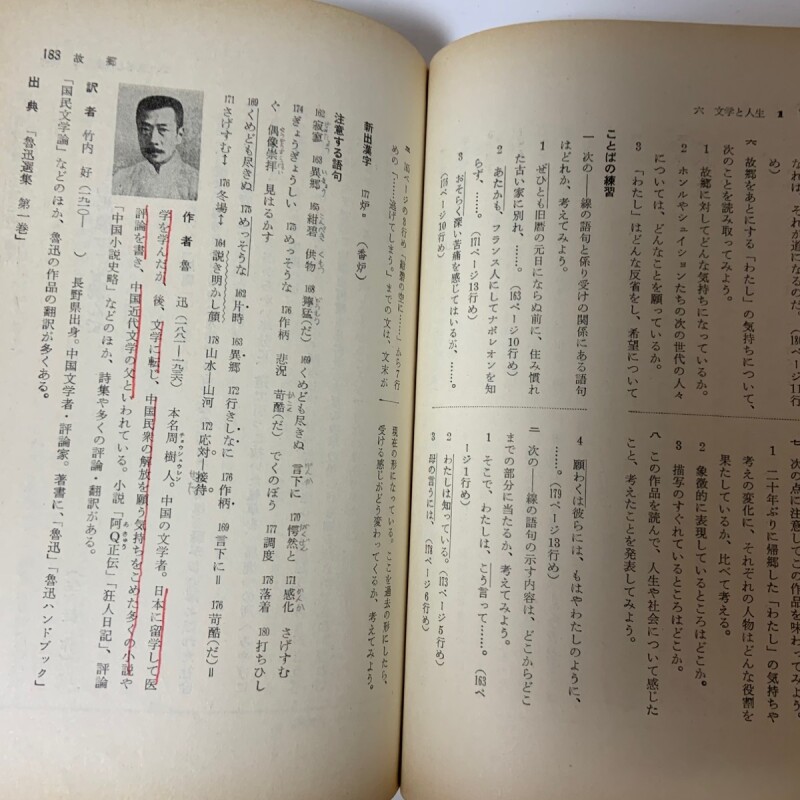 六 文学と人生 1
め）
六 故郷をあとにする「わたし」の気持ちについて、
次のことを読み取ってみよう。
1 故郷に対してどんな気持ちになっているか。
2 ホンルやシェイションたちの次の世代の人々
については、どんなことを願っているか。
3 「わたし」はどんな反省をし、希望について
ことばの練習
一 次の――線の語句と係り受けの関係にある語句
はどれか、考えてみよう。
1 ぜひとも旧暦の元日にならぬ前に、住み慣れ
た古い家に別れ、……。（163ページ10行め）
2 あたかも、フランス人にしてナポレオンを知
らず、……。（171ページ13行め）
3 おそらく深い苦痛を感じてはいるが、……。
七 次の点に注意してこの作品を味わってみよう。
1 二十年ぶりに帰郷した「わたし」の気持ちや
考えの変化に、それぞれの人物はどんな役割を
果たしているか、比べて考える。
2 象徴的に表現しているところはどこか。
3 描写のすぐれているところはどこか。
八 この作品を読んで、人生や社会について感じた
こと、考えたことを発表してみよう。
4 願わくは彼らには、もはやわたしのように、
……。（179ページ13行め）
二 次の――線の語句の示す内容は、どこからどこ
までの部分に当たるか、考えてみよう。
1 そこで、わたしは、こう言って……。（163ペ
ージ1行め）
2 わたしは知っている。（173ページ5行め）
3 母の言うには、（174ページ6行め）
から7行
めの「……逃げてしまう。」までの文は、文末が
現在の形になっている。ここを過去の形にしたら、
受ける感じがどう変わってくるか、考えてみよう。
新出漢字 177 炉。（香炉）
注意する語句
162 寂寥 163 異郷 165 紺碧 供物 168 獰猛（だ） 169 くめども尽きぬ 言下に 170 愕然と 171 感化 さげすむ
174 ぎょうぎょうしい 175 めっそうな 176 作柄 悲況 苛酷（だ） でくのぼう 177 調度 178 落着 180 打ちひし
ぐ 偶像崇拝 見はるかす
169 くめども尽きぬ 175 めっそうな 162 片時 163 異郷 172 行きしなに 176 作柄 169 言下に＝ 176 苛酷（だ）＝
171 さげすむ↕ 176 冬場↕ 164 説き明かし顔 178 山水―山河 172 応対―接待
作者 魯 迅（一八八一―一九三六） 本名周樹人。中国の文学者。日本に留学して医
チョウシュウレン
学を学んだが、後、文学に転じ、中国民衆の解放を願う気持ちをこめた多くの小説や
評論を書き、中国近代文学の父といわれている。小説「阿Q正伝」「狂人日記」、評論
「中国小説史略」などのほか、詩集や多くの評論・翻訳がある。
訳者 竹内 好（一九一〇― ） 長野県出身。中国文学者・評論家。著書に、「魯迅」「魯迅ハンドブック」
「国民文学論」などのほか、魯迅の作品の翻訳が多くある。
出典 「魯迅選集 第一巻」
183 故 郷